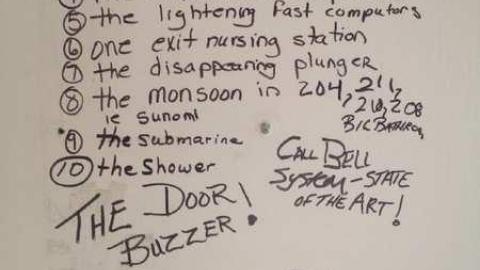 ⑤ the lightening fast computors
⑥ one exit nursing station
⑦ the disappearing plunger
⑧ the monsoon in 204, 211,
, 210, 208
ie sunomi
BIG BATHROOM
⑨ the submarine
⑩ the Shower
CALL BELL
SYSTEM - STATE
OF THE ART!
THE DOOR!
BUZZER!